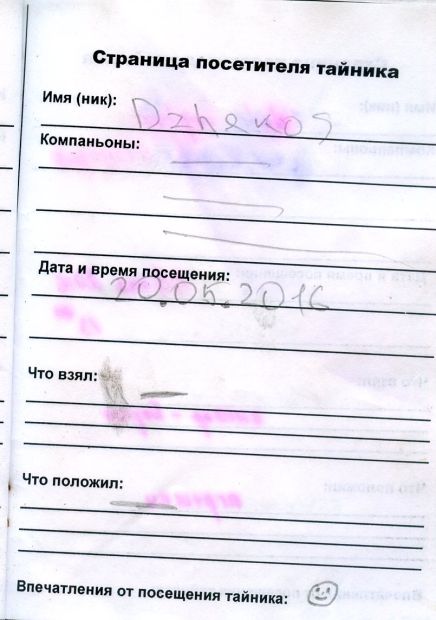 Страница посетителя тайника
Имя (ник): Dzhekos
Компаньоны: —
Дата и время посещения:
20.05.2016
Что взял: —
Что положил: —
Впечатления от посещения тайника: ☺